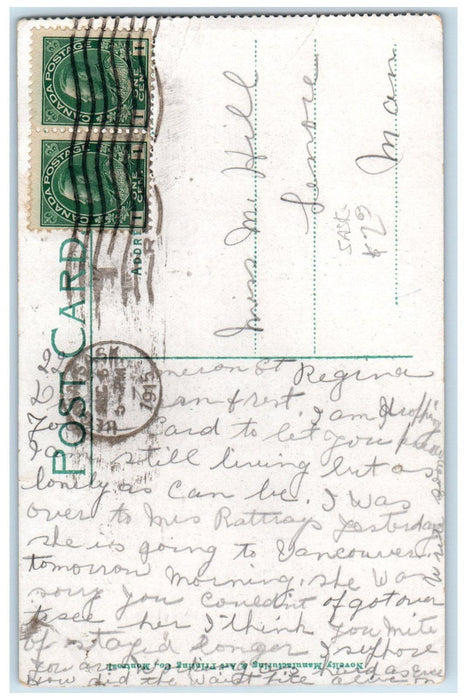 CANADA POSTAGE
1 ONE CENT 1
CANADA POSTAGE
1 ONE CENT 1
POST CARD
Miss M. Hill
Lenore
Man
$23
1915
St Regina
friend. I am dropping
you a card to let you know
I am still living but as
lonely as can be. I was
over to Mrs Rattrays yesterday
she is going to Vancouver
tomorrow morning, she was
sorry you couldn't of got over
to see her I think you mite
of stayed longer I suppose
you are
How did the waist
Novelty Manufacturing & Art Printing Co., Montreal